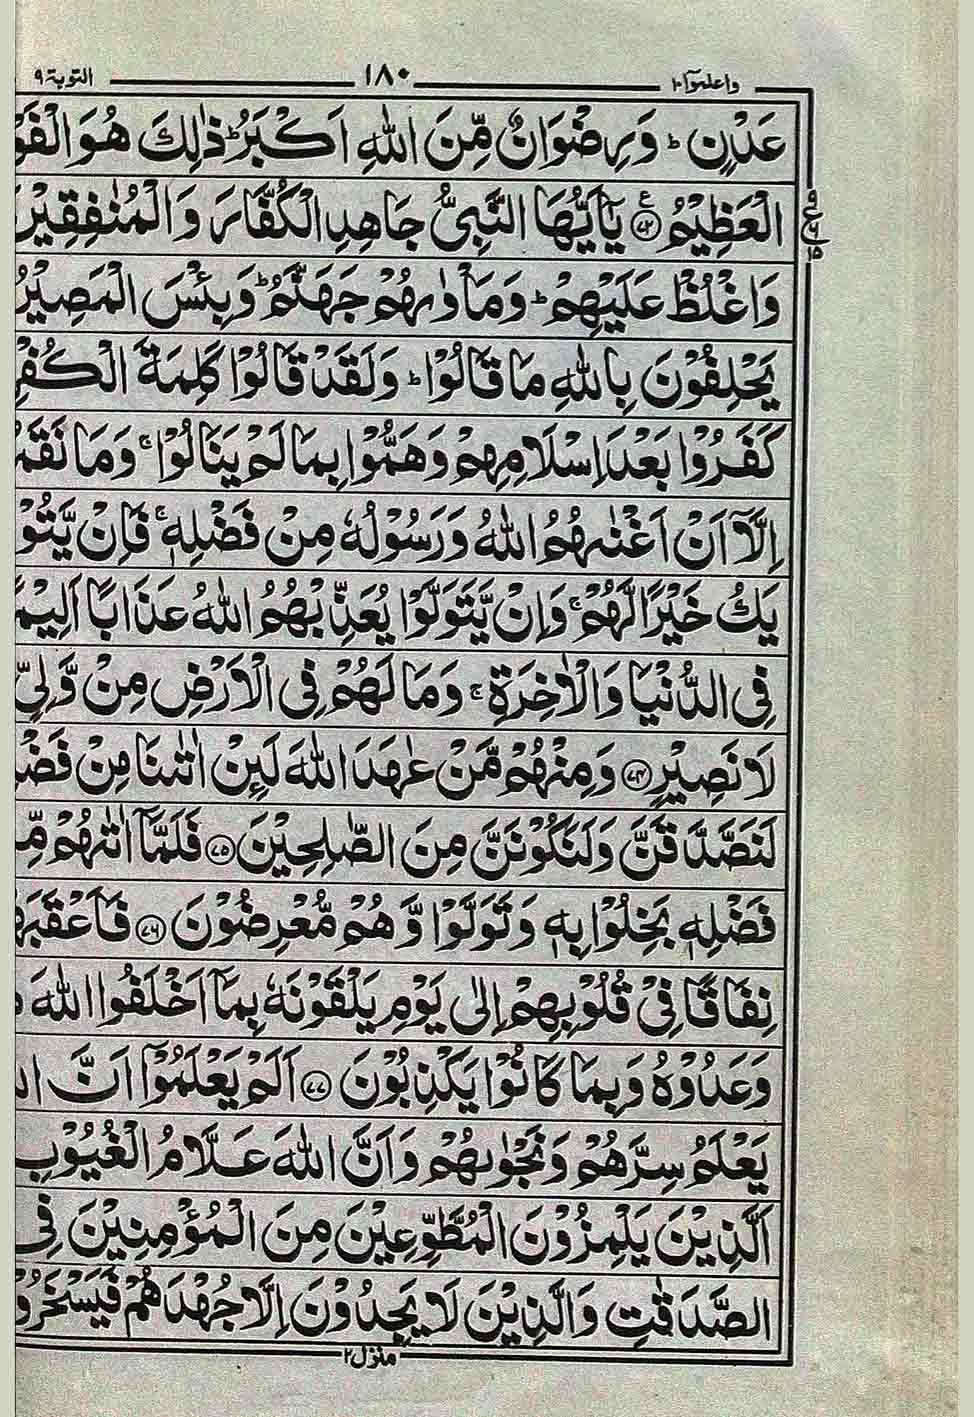 التوبة ٩ ١٨٠ واعلموآ ١٠
عَدْنٍ ؕ وَرِضْوَانٌ مِّنَ اللّٰهِ اَكْبَرُ ؕ ذٰلِكَ هُوَ الْفَوْ
الْعَظِيْمُ ﴿٧٢﴾ يٰۤاَيُّهَا النَّبِىُّ جَاهِدِ الْكُفَّارَ وَالْمُنٰفِقِيْنَ
وَاغْلُظْ عَلَيْهِمْ ؕ وَمَاْوٰىهُمْ جَهَنَّمُ ؕ وَبِئْسَ الْمَصِيْرُ
يَحْلِفُوْنَ بِاللّٰهِ مَا قَالُوْا ؕ وَلَقَدْ قَالُوْا كَلِمَةَ الْكُفْرِ
كَفَرُوْا بَعْدَ اِسْلَامِهِمْ وَهَمُّوْا بِمَا لَمْ يَنَالُوْا ۚ وَمَا نَقَمُ
اِلَّاۤ اَنْ اَغْنٰىهُمُ اللّٰهُ وَرَسُوْلُهٗ مِنْ فَضْلِهٖ ۚ فَاِنْ يَّتُوْ
يَكُ خَيْرًا لَّهُمْ ۚ وَاِنْ يَّتَوَلَّوْا يُعَذِّبْهُمُ اللّٰهُ عَذَابًا اَلِيْمً
فِى الدُّنْيَا وَالْاٰخِرَةِ ۚ وَمَا لَهُمْ فِى الْاَرْضِ مِنْ وَّلِىٍّ
لَا نَصِيْرٍ ﴿٧٤﴾ وَمِنْهُمْ مَّنْ عٰهَدَ اللّٰهَ لَئِنْ اٰتٰىنَا مِنْ فَضْ
لَنَصَّدَّقَنَّ وَلَنَكُوْنَنَّ مِنَ الصّٰلِحِيْنَ ﴿٧٥﴾ فَلَمَّاۤ اٰتٰىهُمْ مِّ
فَضْلِهٖ بَخِلُوْا بِهٖ وَتَوَلَّوْا وَّهُمْ مُّعْرِضُوْنَ ﴿٧٦﴾ فَاَعْقَبَهُ
نِفَاقًا فِىْ قُلُوْبِهِمْ اِلٰى يَوْمِ يَلْقَوْنَهٗ بِمَاۤ اَخْلَفُوا اللّٰهَ
وَعَدُوْهُ وَبِمَا كَانُوْا يَكْذِبُوْنَ ﴿٧٧﴾ اَلَمْ يَعْلَمُوْۤا اَنَّ
يَعْلَمُ سِرَّهُمْ وَنَجْوٰىهُمْ وَاَنَّ اللّٰهَ عَلَّامُ الْغُيُوْبِ
اَلَّذِيْنَ يَلْمِزُوْنَ الْمُطَّوِّعِيْنَ مِنَ الْمُؤْمِنِيْنَ فِى
الصَّدَقٰتِ وَالَّذِيْنَ لَا يَجِدُوْنَ اِلَّا جُهْدَهُمْ فَيَسْخَرُوْ
منزل ٢
ع